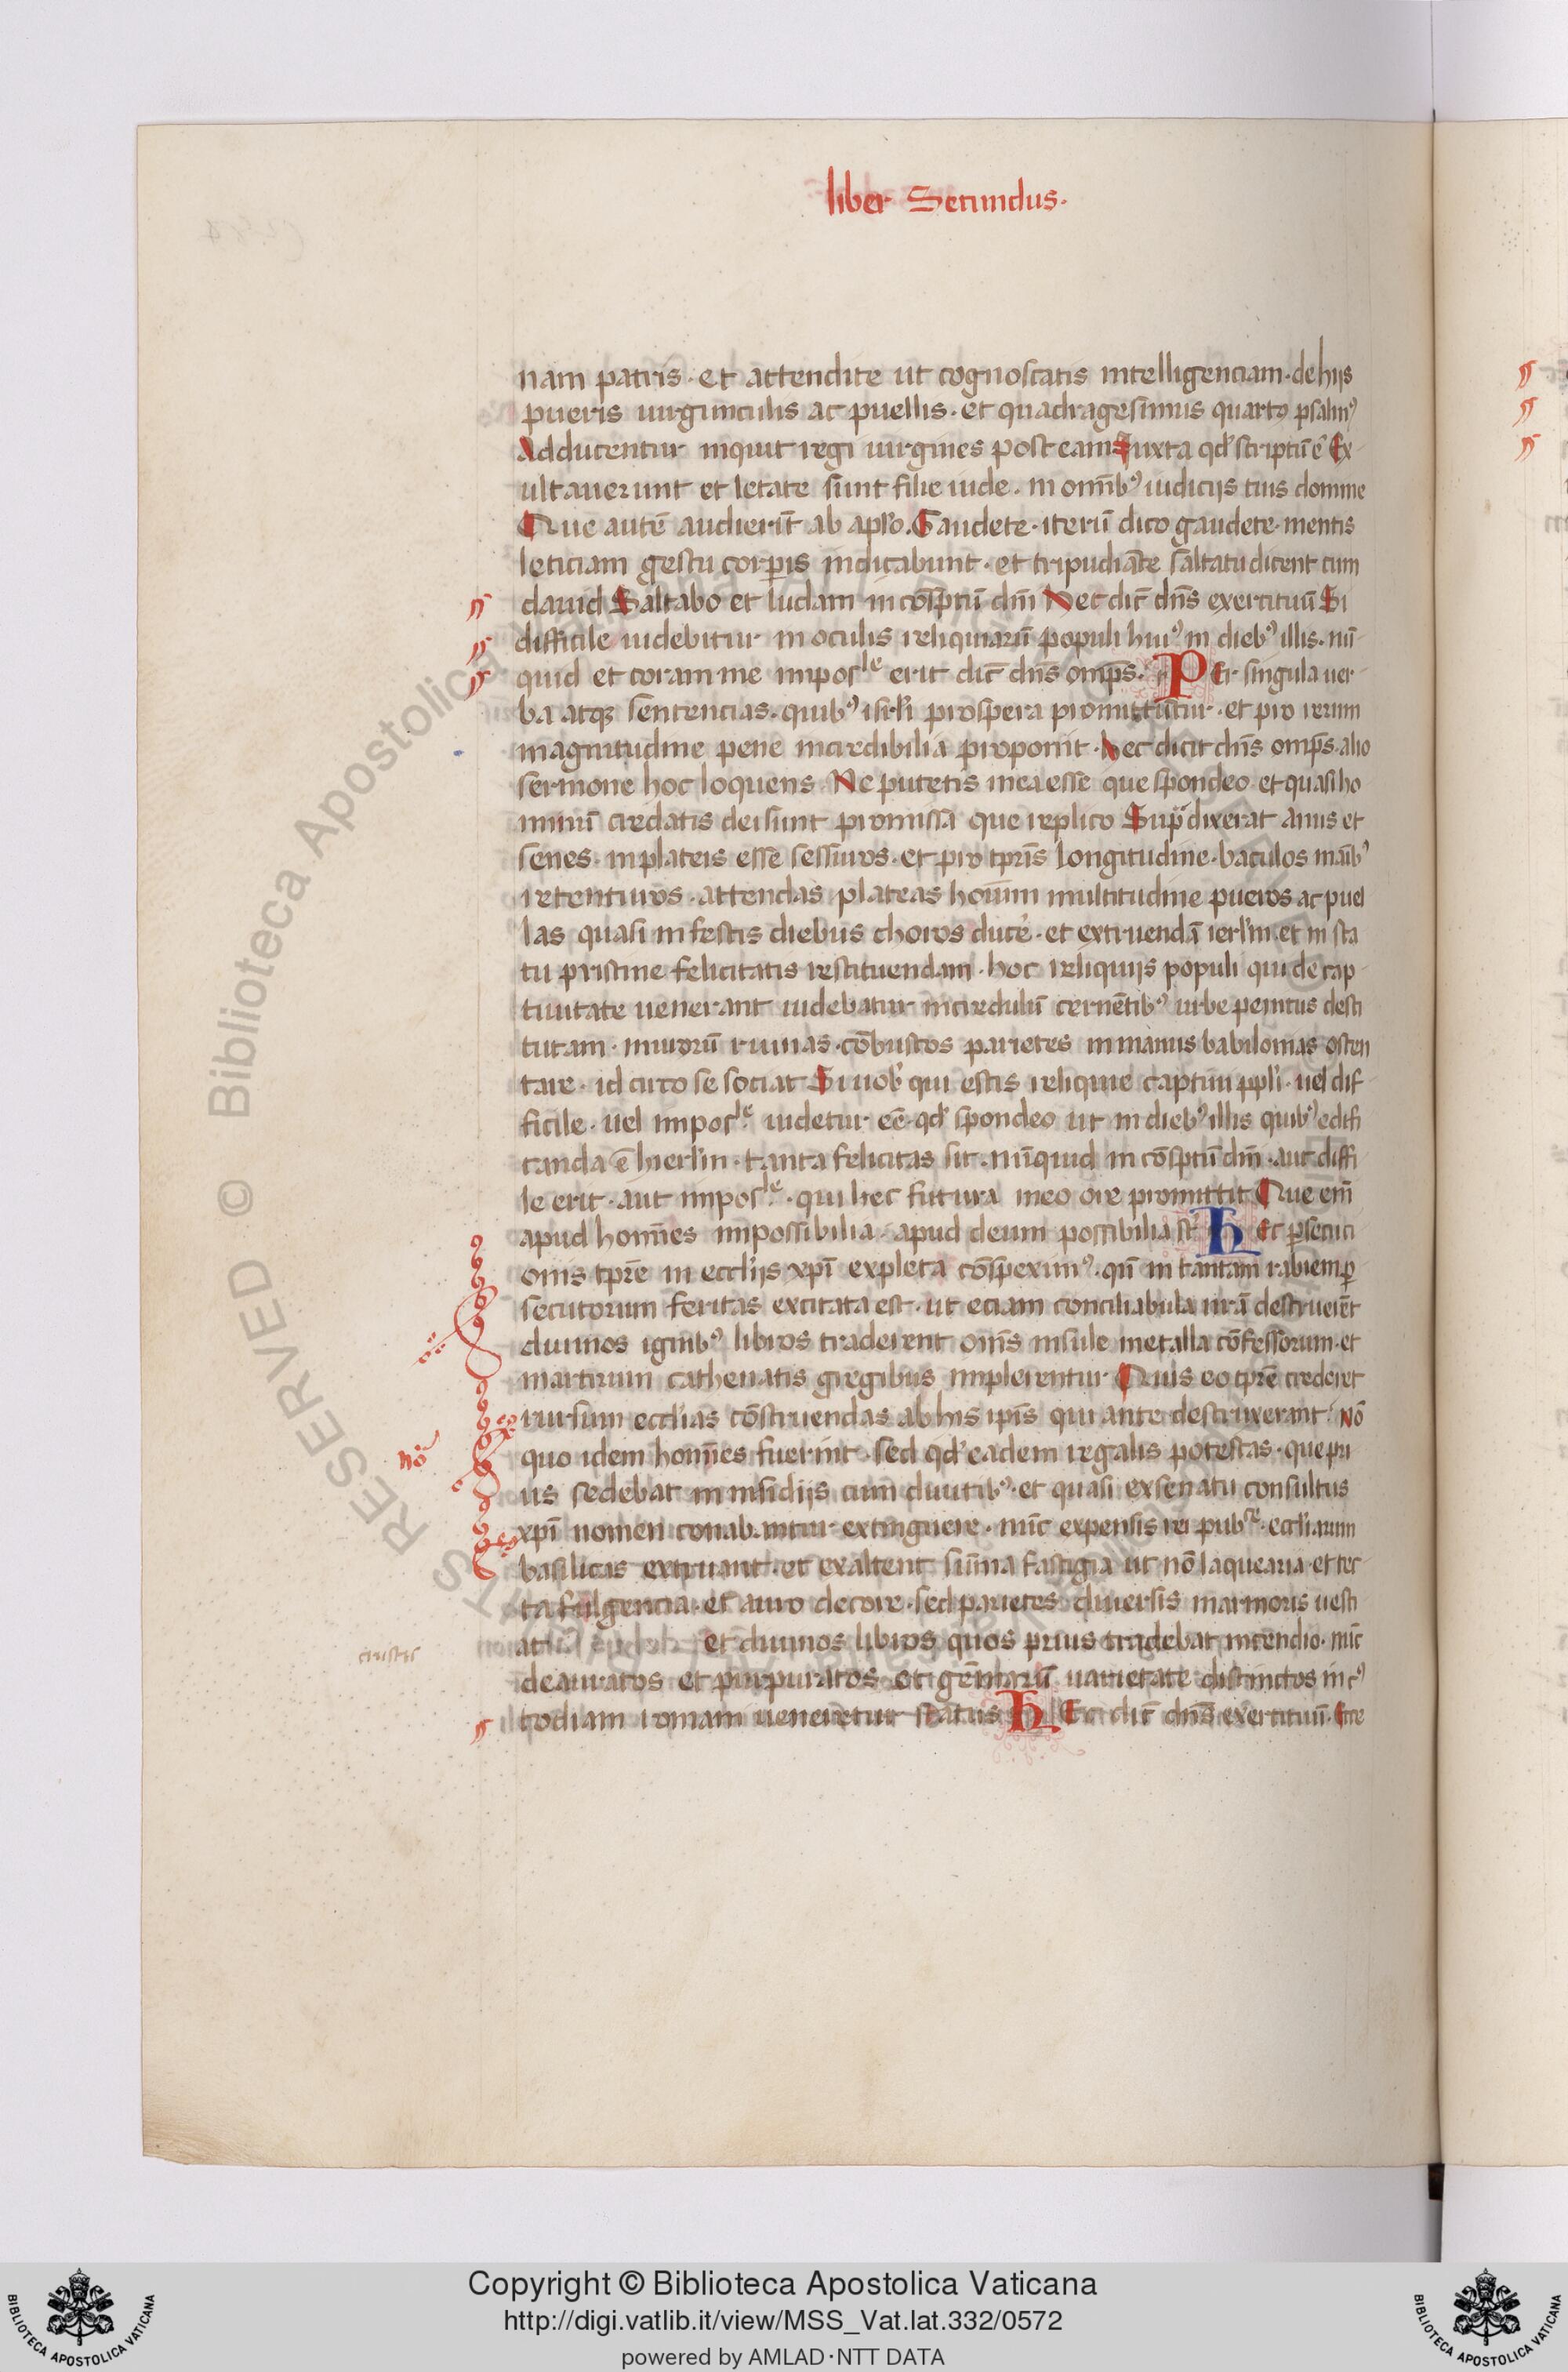 liber Secundus.
nam patris. et attendite ut cognoscatis intelligenciam. de hijs
pueris uirgunculis ac puellis. et quadragesimus quarto psalmꝰ
Adducentur inquit regi uirgines post eam Iuxta qd' scriptũ ẽ Ex
ultauerunt et letate sunt filie iude. in omĩbꝰ iudicijs tuis domine
Que autẽ audierĩt ab apl'o. Gaudete. iterũ dico gaudete. mentis
leticiam gestu corꝑis indicabunt. et tripudiãte saltatu dicent cum
dauid Saltabo et ludam in cõspectũ dñi Nec dic̃ dñs exercituũ Si
difficile uidebitur in oculis reliquiarũ populi huiꝰ in diebꝰ illis. nũ
quid et coram me impos'le erit dic̃ dñs omp̃s. Per singula uer
ba atqȝ sentencias. quibꝰ isrl'i prospera promittũtur. et pro rerum
magnitudine pene incredibilia proponit. hec dicit dñs omp̃s. alio
sermone hoc loquens Ne putetis mea esse que spondeo. et quasi ho
minũ credatis dei sunt promissa que replico Sup̃ dixerat anus et
senes. in plateis esse sessuros. et pro tp̃ris longitudine. baculos mãibꝰ
retenturos. attendas plateas hoĩum multitudine pueros ac puel
las quasi in festis diebus choros duce'. et extruendã ierl'm. et in sta
tu pristine felicitatis restituendam. hoc reliquijs populi qui de cap
tiuitate uenerant uidebatur incredulũ cernẽtibꝰ urbe penitus desti
tutam. murorũ ruinas. cõbustos parietes in manus babilonias osten
tare. id circo se sociat Si uob' qui estis reliquie captiui ppl'i. uel dif
ficile. uel impos'le uidetur eẽ. qd' spondeo ut in diebꝰ illis quibꝰ edifi
canda ẽ hierl'm. tanta felicitas sit. nũquid in cõspectũ dñi. aut diffi
le erit. aut impos'le. qui hec futura meo ore promittit Que em̃
apud homĩes impossibilia. apud deum possibilia st̃ hec ꝑsecuci
onis tp̃re in eccl'ijs xp̃i expleta cõspeximꝰ. qũ in tantam rabiem ꝑ
secutorum feritas excitata est. ut eciam conciliabula nr̃a destruerẽt
diuinos ignibꝰ libros traderent om̃s insule metalla cõfessorum. et
martirum cathenatis gregibus implerentur Quis eo tp̃re crederet
rursum eccl'ias cõstruendas ab his ip̃is qui ante destruxerant. Nõ
nõ
quo idem homĩes fuerint. sed qd' eadem regalis potestas. que pri
us sedebat in insidijs cum diuitibꝰ. et quasi ex senatu consultus
xp̃i nomen conabantur extinguere. nũc expensis rei pub'ce. eccl'iarum
basilicas extruant. et exaltent sũma fastigia ut nõ laquearia. et tec
ta fulgencia. et auro decore. sed parietes diuersis marmoris uesti
at et diuinos libros quos prius tradebat incendio. nũc
crustis
deauratos et purpuratos et gẽmarũ uarietate distinctos in cꝰ
todiam romam ueneretur status Hec dic̃ dñs exercituũ. Ecce
Copyright © Biblioteca Apostolica Vaticana
http://digi.vatlib.it/view/MSS_Vat.lat.332/0572
powered by AMLAD·NTT DATA